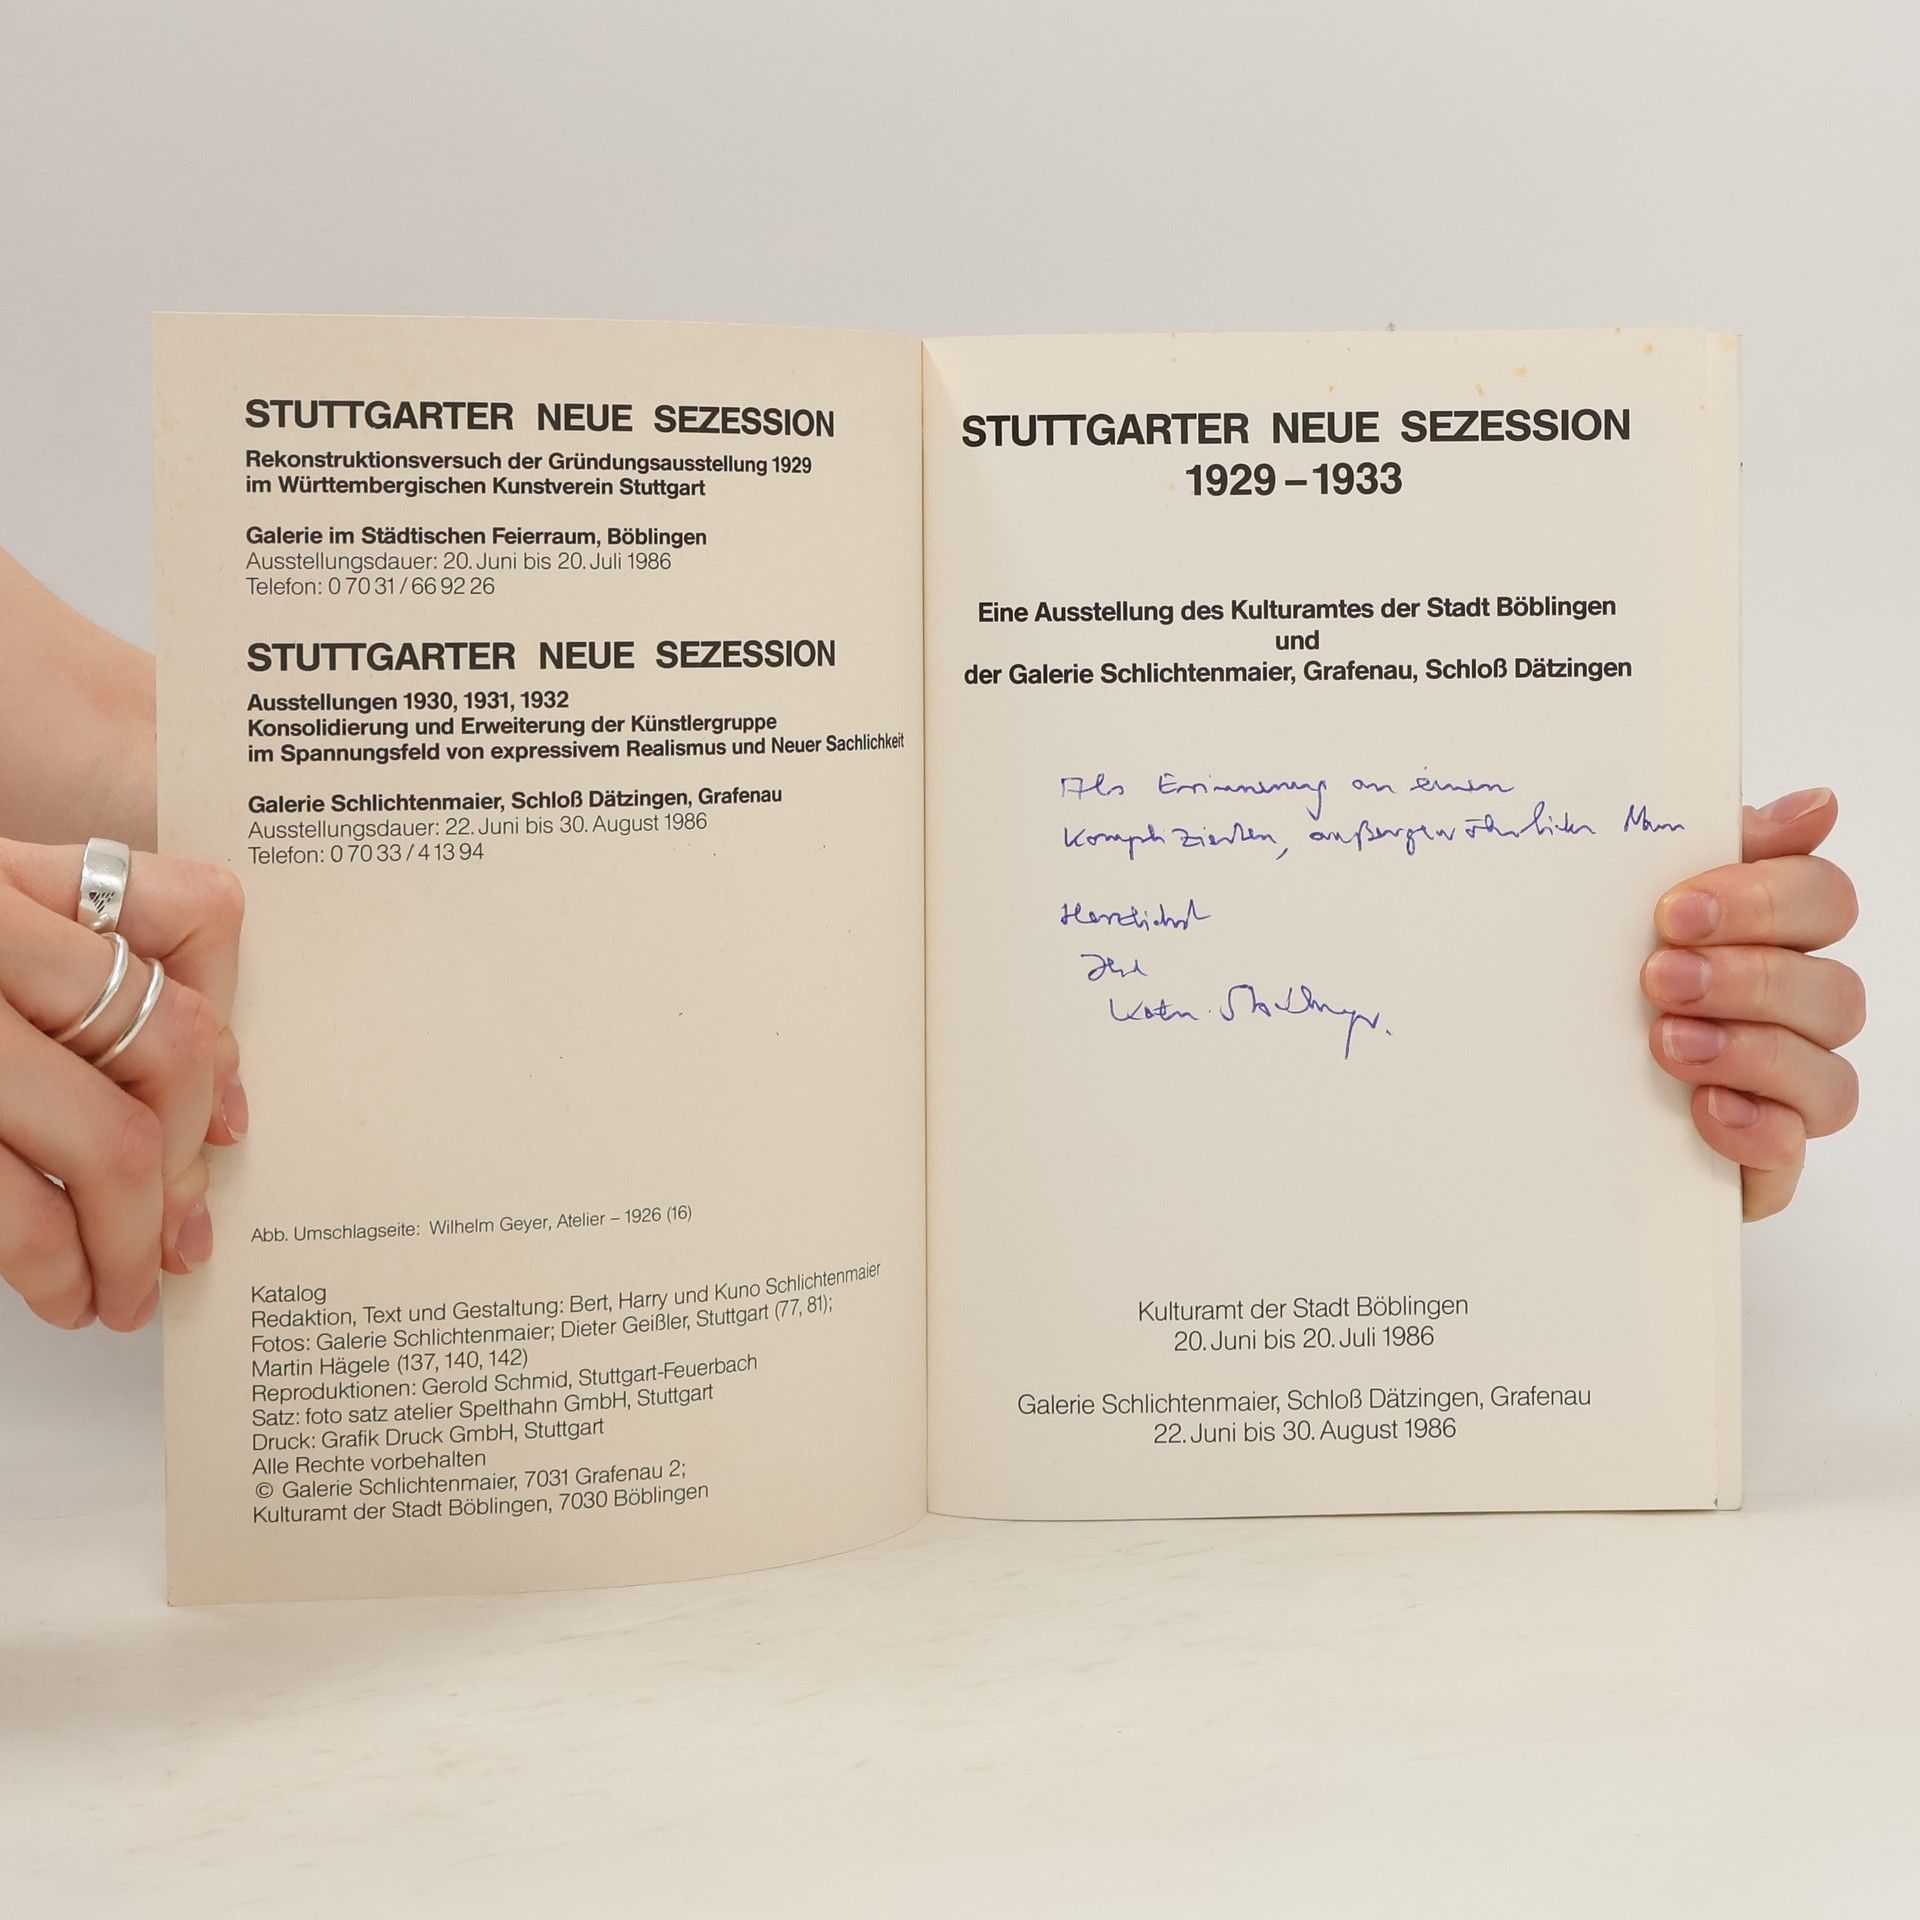 STUTTGARTER NEUE SEZESSION
Rekonstruktionsversuch der Gründungsausstellung 1929
im Württembergischen Kunstverein Stuttgart
Galerie im Städtischen Feierraum, Böblingen
Ausstellungsdauer: 20. Juni bis 20. Juli 1986
Telefon: 0 70 31 / 66 92 26
STUTTGARTER NEUE SEZESSION
Ausstellungen 1930, 1931, 1932
Konsolidierung und Erweiterung der Künstlergruppe
im Spannungsfeld von expressivem Realismus und Neuer Sachlichkeit
Galerie Schlichtenmaier, Schloß Dätzingen, Grafenau
Ausstellungsdauer: 22. Juni bis 30. August 1986
Telefon: 0 70 33 / 4 13 94
Abb. Umschlagseite: Wilhelm Geyer, Atelier – 1926 (16)
Katalog
Redaktion, Text und Gestaltung: Bert, Harry und Kuno Schlichtenmaier
Fotos: Galerie Schlichtenmaier; Dieter Geißler, Stuttgart (77, 81);
Martin Hägele (137, 140, 142)
Reproduktionen: Gerold Schmid, Stuttgart-Feuerbach
Satz: foto satz atelier Spelthahn GmbH, Stuttgart
Druck: Grafik Druck GmbH, Stuttgart
Alle Rechte vorbehalten
© Galerie Schlichtenmaier, 7031 Grafenau 2;
Kulturamt der Stadt Böblingen, 7030 Böblingen
STUTTGARTER NEUE SEZESSION
1929 – 1933
Eine Ausstellung des Kulturamtes der Stadt Böblingen
und
der Galerie Schlichtenmaier, Grafenau, Schloß Dätzingen
Als Erinnerung an einen
komplizierten, außergewöhnlichen Mann
Herzlichst
Kulturamt der Stadt Böblingen
20. Juni bis 20. Juli 1986
Galerie Schlichtenmaier, Schloß Dätzingen, Grafenau
22. Juni bis 30. August 1986